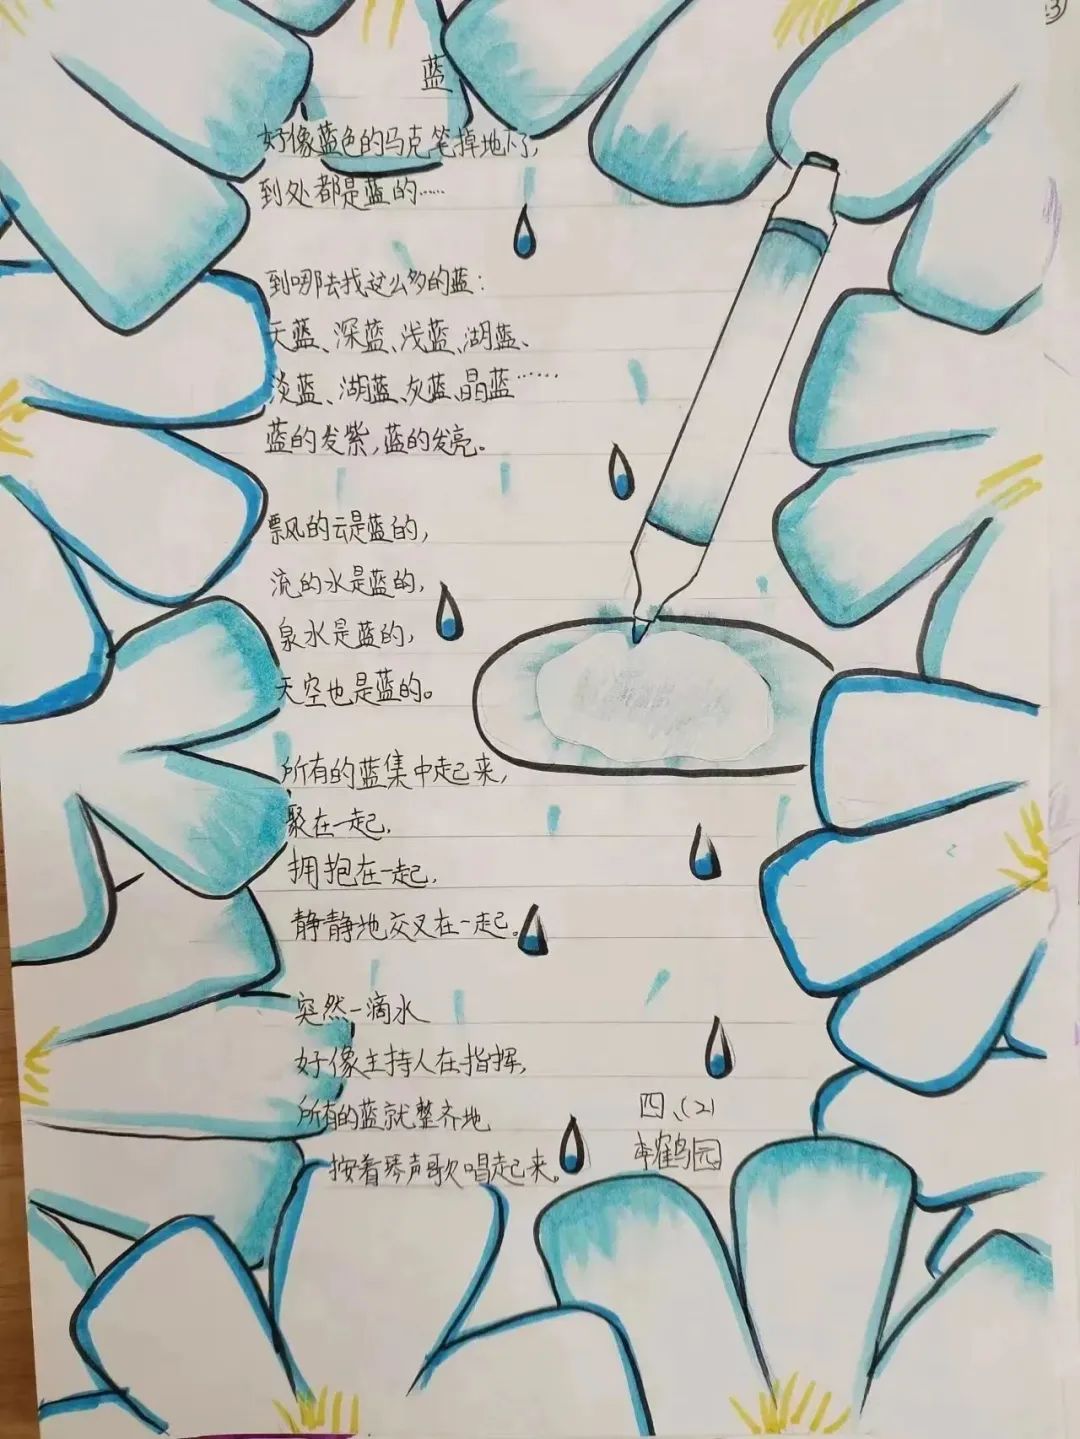 ③
蓝
好像蓝色的马克笔掉地下了,
到处都是蓝的……
到哪去找这么多的蓝:
天蓝、深蓝、浅蓝、湖蓝、
淡蓝、湖蓝、灰蓝、晶蓝……
蓝的发紫,蓝的发亮。
飘的云是蓝的,
流的水是蓝的,
泉水是蓝的,
天空也是蓝的。
所有的蓝集中起来,
聚在一起,
拥抱在一起,
静静地交叉在一起。
突然一滴水
好像主持人在指挥,
所有的蓝就整齐地
按着琴声歌唱起来。
四、(2)
李鹤园